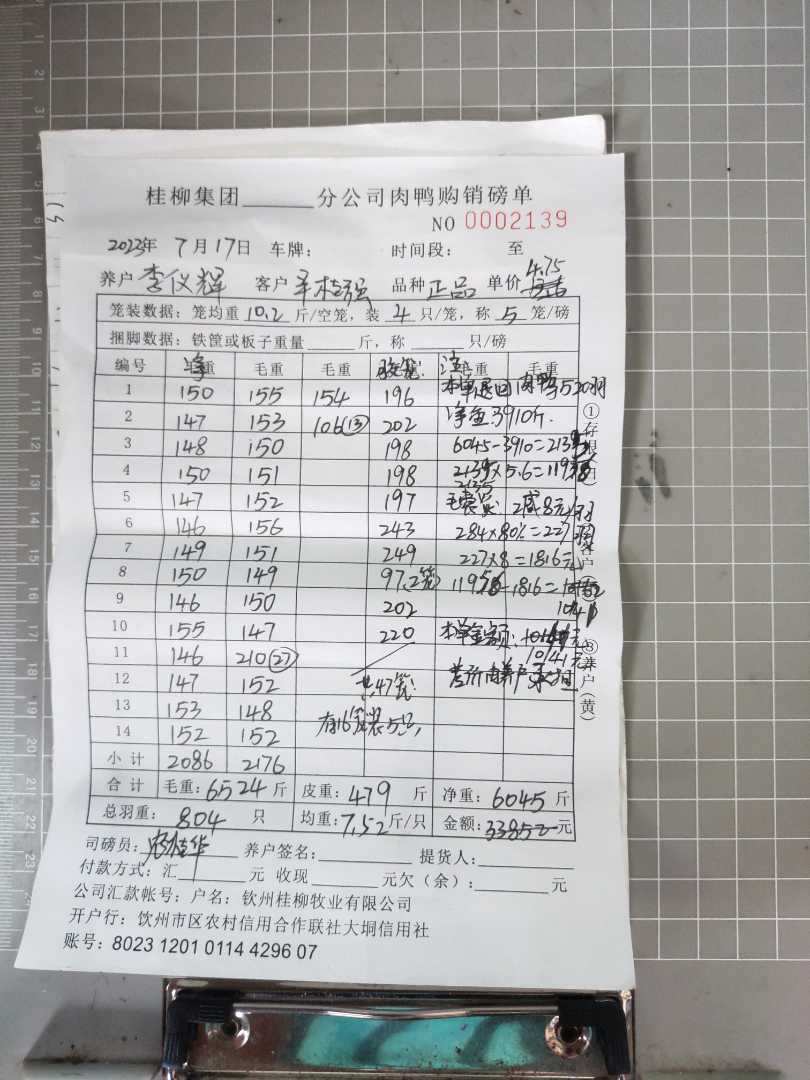 桂柳集团______分公司肉鸭购销磅单
NO 0002139
2023年 7月17日 车牌： 时间段： 至
养户 李仪辉 客户 品种 正品 单价 4.75
笼装数据：笼均重 10.2 斤/空笼，装 4 只/笼，称 5 笼/磅
捆脚数据：铁筐或板子重量______斤，称______只/磅
编号 净重 毛重 毛重 收笼： 注：毛重 毛重
1 150 155 154 196 本单退回肉鸭520羽
2 147 153 106(13) 202 净重：3910斤.
3 148 150 198 6045-3910=2135
4 150 151 198 2135×5.6=11956
2135
5 147 152 197 减8元/羽
6 146 156 243 284×80%=227羽
7 149 151 249 227×8=1816元
8 150 149 97(2笼) 11956-1816=
9 146 150 202 10141
10 155 147 220 本单金额：
11 146 210(27) 10141元
12 147 152 共47笼：
13 153 148 有16笼装5只，
14 152 152
小计 2086 2176
合计 毛重：6524斤 皮重：479斤 净重：6045斤
总羽重：804只 均重：7.52斤/只 金额：33852元
司磅员： 养户签名： 提货人：
付款方式：汇______元 收现______元欠（余）：______元
公司汇款帐号：户名：钦州桂柳牧业有限公司
开户行：饮州市区农村信用合作联社大垌信用社
账号：8023 1201 0114 4296 07
①存根
客户
③养户(黄)